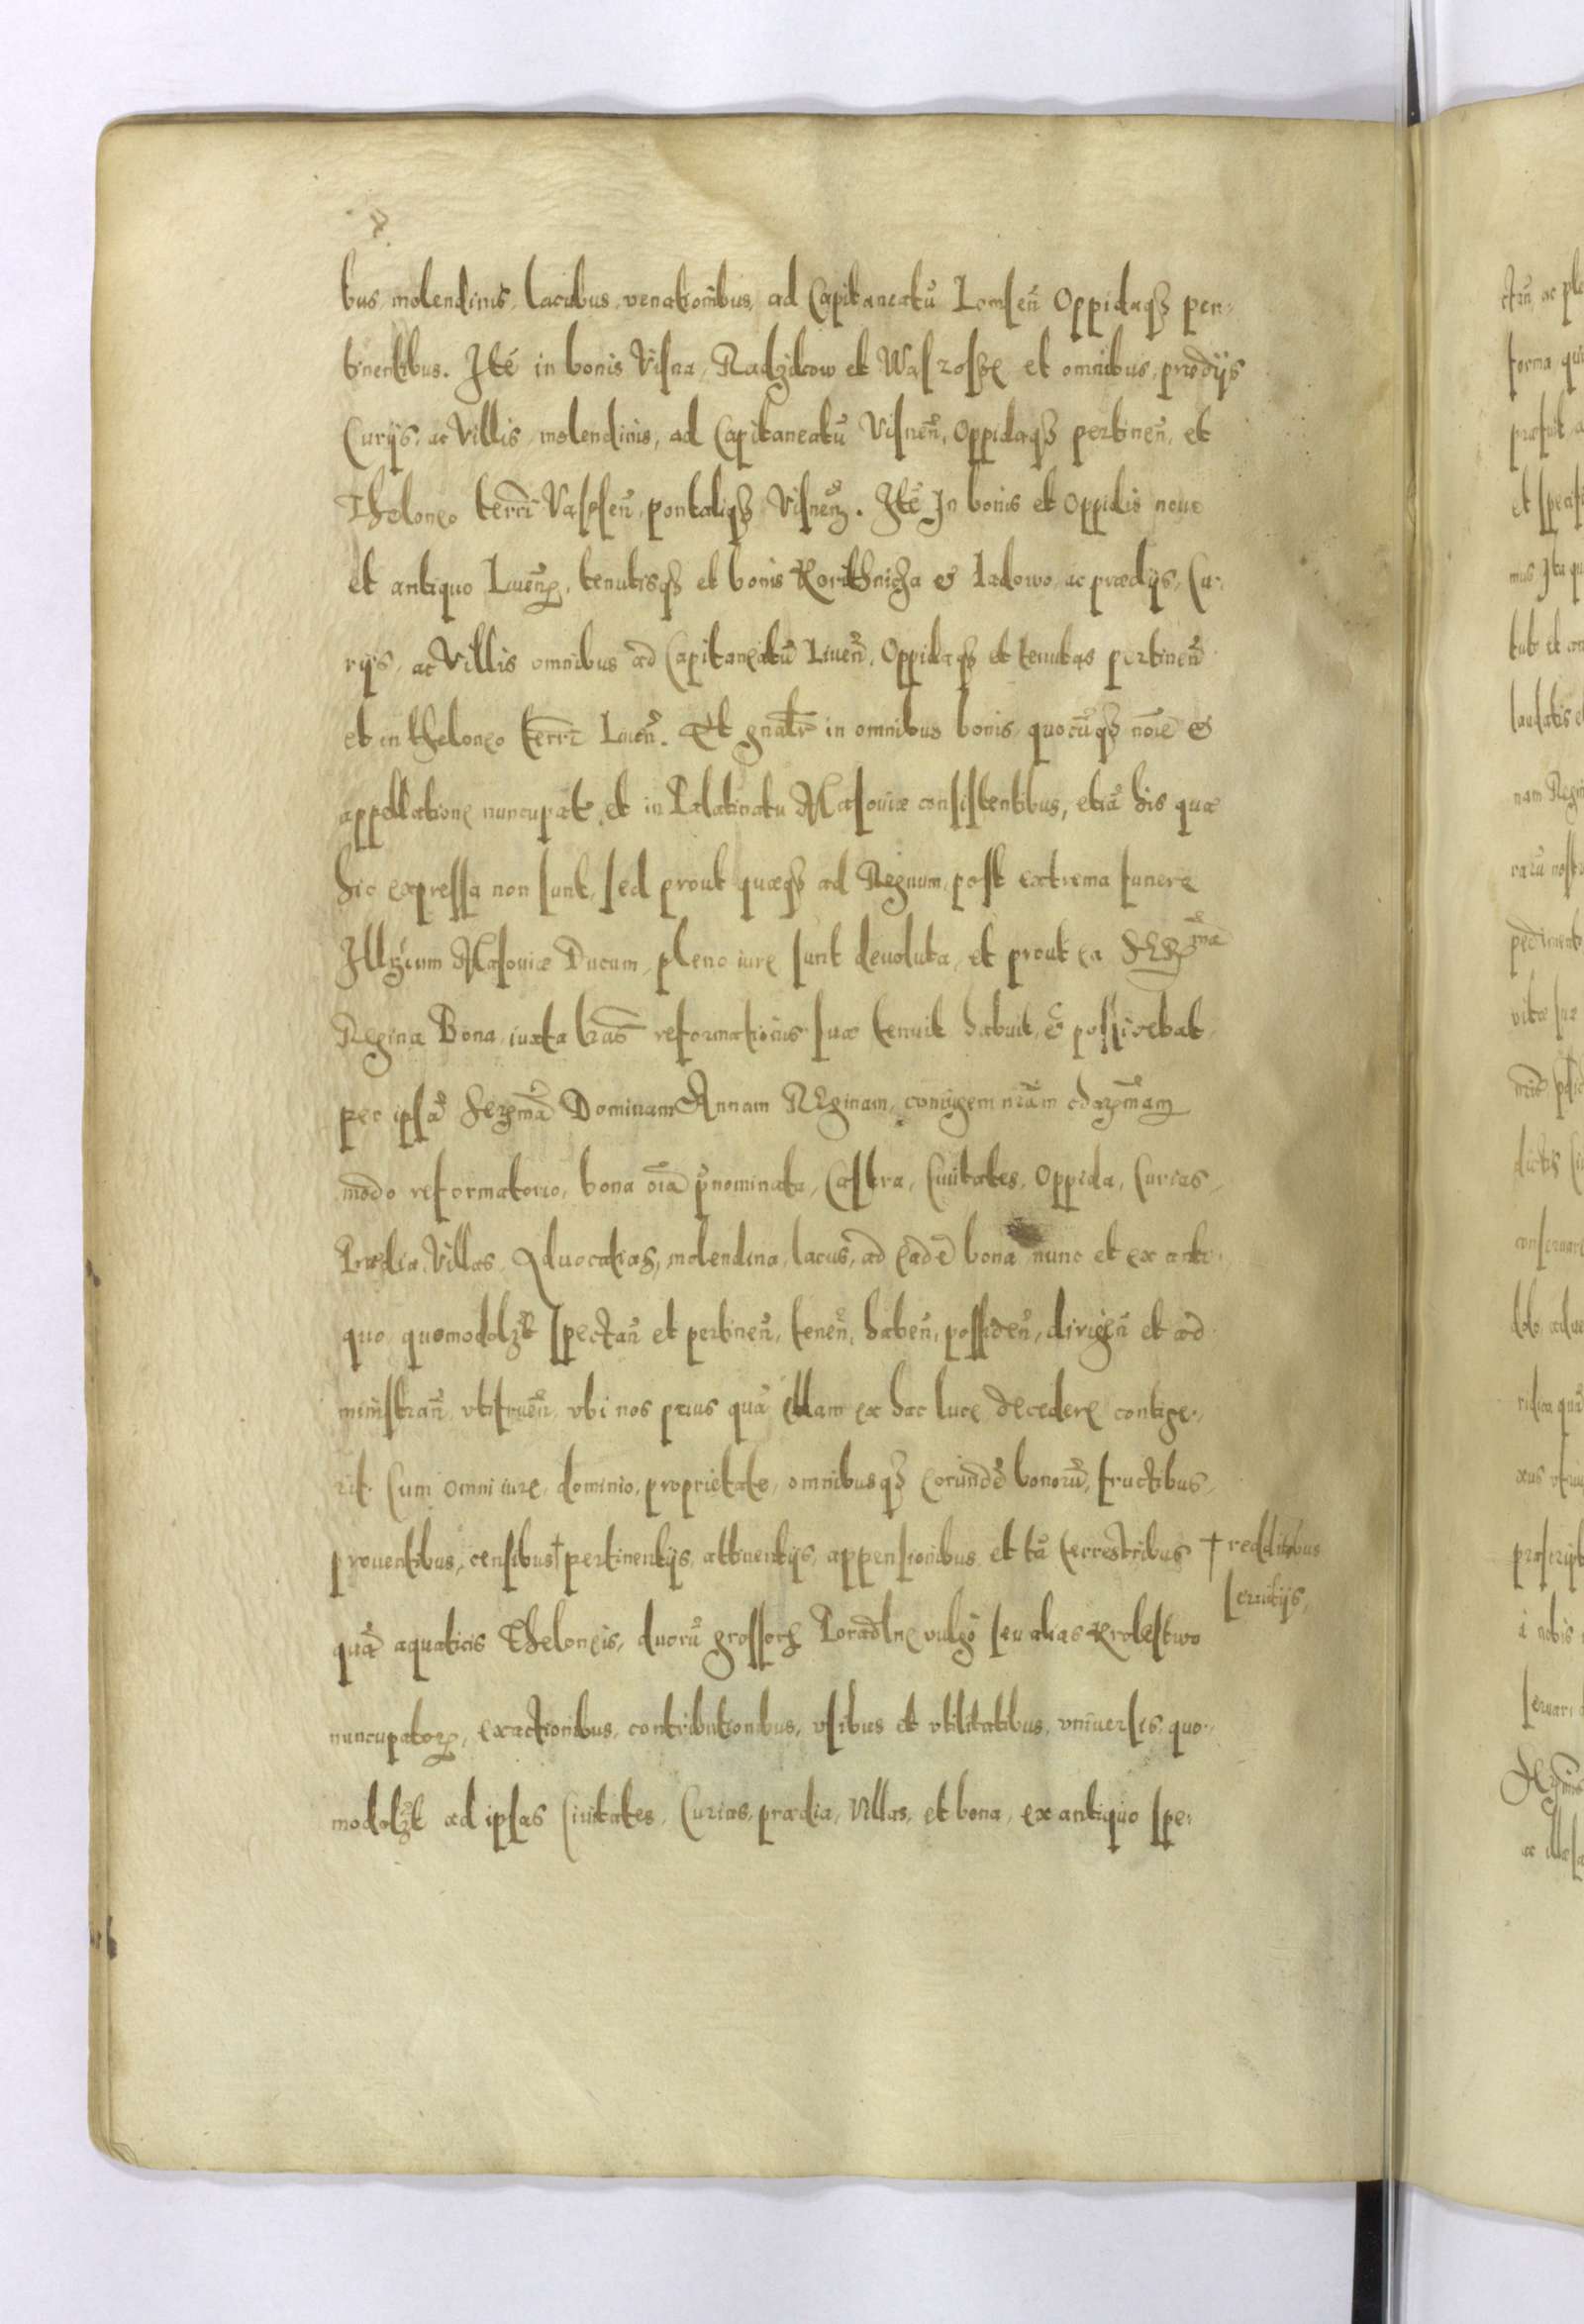 bus molendinis, lacubus, venationibus, ad Capitaneatũ Lomſeñ Oppidaqȝ per,
tinentibus. Itẽ in bonis Viſna, Radzilow et Waſzoſze et omnibus, prædijs
Curijs, ac Villis, molendinis, ad Capitaneatũ Viſneñ, Oppidaqȝ pertineñ, et
Theloneo terrę̃ Viſneñ. Itẽ In bonis et Oppidis nouo
et antiquo Liueñ, tenutisqȝ et bonis Korithnicza & Iadowo, ac prædijs, Cu,
rijs, ac Villis omnibus ad Capitaneatũ Liueñ, Oppidaqȝ et tenutas pertineñ
et in theloneo terrę̃ Liueñ. Et gñalr̃ in omnibus bonis, quocũqȝ noĩe &
appellatione nuncupat, et in Palatinatu Maſouiæ conſiſtentibus, etiã his quæ
hic expreſſa non ſunt, ſed prout quæqȝ ad Regnum, poſt extrema funera
Illrium Maſouiæ Ducum, pleno iure ſunt deuoluta, et prout ea Serma
Regina Bona, iuxta lr̃as reformationis ſuæ tenuit, habuit, & poſſidebat,
per ipſã Serzmã Dominam Annam Reginam, coniugem nr̃am charzmam
modo reformatorio, bona oĩa p̃nominata, Caſtra, Ciuitates, Oppida, Curias,
Prædia, Villas, Aduocatias, molendina, lacus, ad eadẽ bona nunc et ex anti,
quo, quomodolȝt ſpectañ et pertineñ, teneñ, habeñ, poſſideñ, dirigeñ et ad
miniſtrañ, vtifrueñ, vbi nos prius quã illam ex hac luce decedere contige,
rit. Cum omni iure, dominio, proprietate, omnibusqȝ eorundẽ bonorũ, fructibus,
prouentibus, cenſibus † pertinentijs, attinentijs, appenſionibus, et tã terreſtribus † redditibus
ſeruitijs,
quã aquaticis Theloneis, duorũ groſſorȝ Poradlne vulgo ſeu alias Kroleſtwo
nuncupatorȝ, exactionibus, contributionibus, vſibus et vtilitatibus, vniuerſis, quo,
modolȝt ad ipſas Ciuitates, Curias, prædia, Villas, et bona, ex antiquo ſpe,